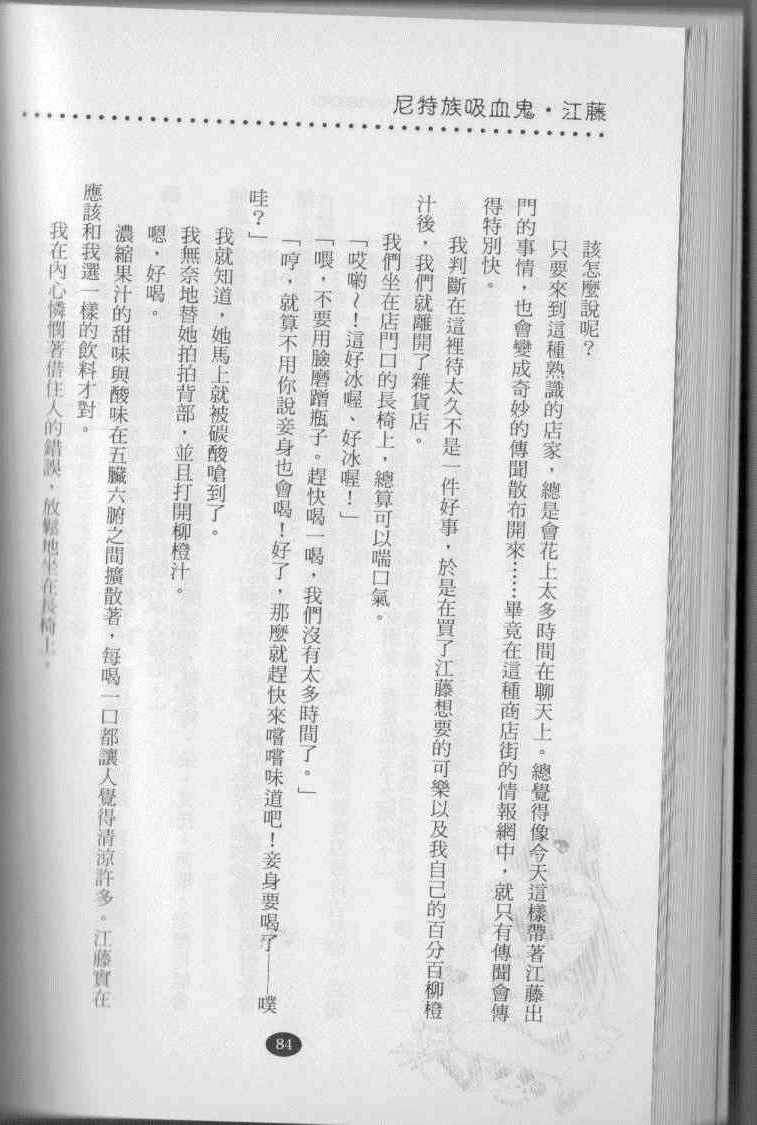 尼特族吸血鬼·江藤
該怎麼說呢？
只要來到這種熟識的店家，總是會花上太多時間在聊天上。總覺得像今天這樣帶著江藤出
門的事情，也會變成奇妙的傳聞散布開來……畢竟在這種商店街的情報網中，就只有傳聞會傳
得特別快。
我判斷在這裡待太久不是一件好事，於是在買了江藤想要的可樂以及我自己的百分百柳橙
汁後，我們就離開了雜貨店。
我們坐在店門口的長椅上，總算可以喘口氣。
「哎喲～！這好冰喔、好冰喔！」
「喂，不要用臉磨蹭瓶子。趕快喝一喝，我們沒有太多時間了。」
「哼，就算不用你說妾身也會喝！好了，那麼就趕快來嚐嚐味道吧！妾身要喝了——噗
哇？」
我就知道，她馬上就被碳酸嗆到了。
我無奈地替她拍拍背部，並且打開柳橙汁。
嗯，好喝。
濃縮果汁的甜味與酸味在五臟六腑之間擴散著，每喝一口都讓人覺得清涼許多。江藤實在
應該和我選一樣的飲料才對。
我在內心憐憫著借住人的錯誤，放鬆地坐在長椅上。
84